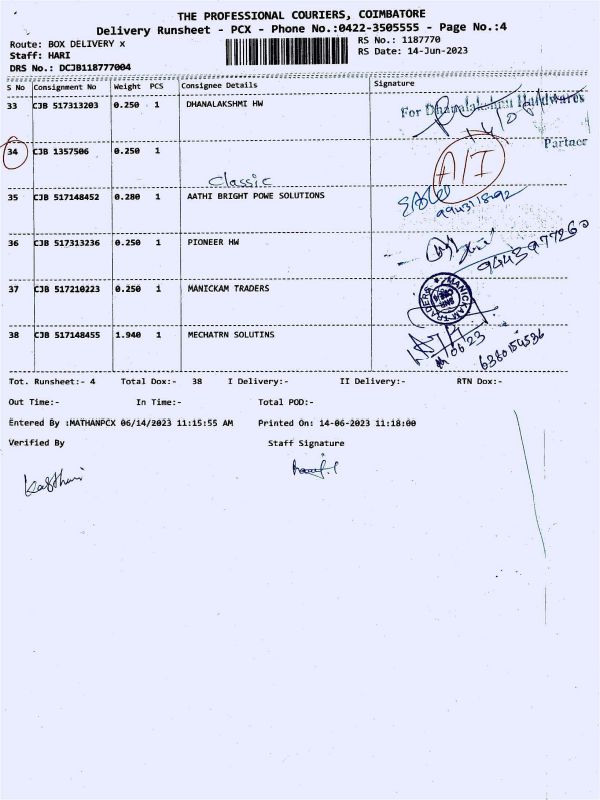 THE PROFESSIONAL COURIERS, COIMBATORE
Delivery Runsheet - PCX - Phone No.:0422-3505555 - Page No.:4
Route: BOX DELIVERY x
RS No.: 1187770
Staff: HARI
RS Date: 14-Jun-2023
DRS No.: DCJB118777004
S No Consignment No Weight PCS Consignee Details Signature
33 CJB 517313203 0.250 1 DHANALAKSHMI HW
For Dhanalakshmi Hardwares
Partner
34 CJB 1357506 0.250 1
A/I
Classic
35 CJB 517148452 0.280 1 AATHI BRIGHT POWE SOLUTIONS
36 CJB 517313236 0.250 1 PIONEER HW
37 CJB 517210223 0.250 1 MANICKAM TRADERS
MANICKAM TRADERS
38 CJB 517148455 1.940 1 MECHATRN SOLUTINS
6380154536
Tot. Runsheet:- 4 Total Dox:- 38 I Delivery:- II Delivery:- RTN Dox:-
Out Time:- In Time:- Total POD:-
Entered By :MATHANPCX 06/14/2023 11:15:55 AM Printed On: 14-06-2023 11:18:00
Verified By Staff Signature